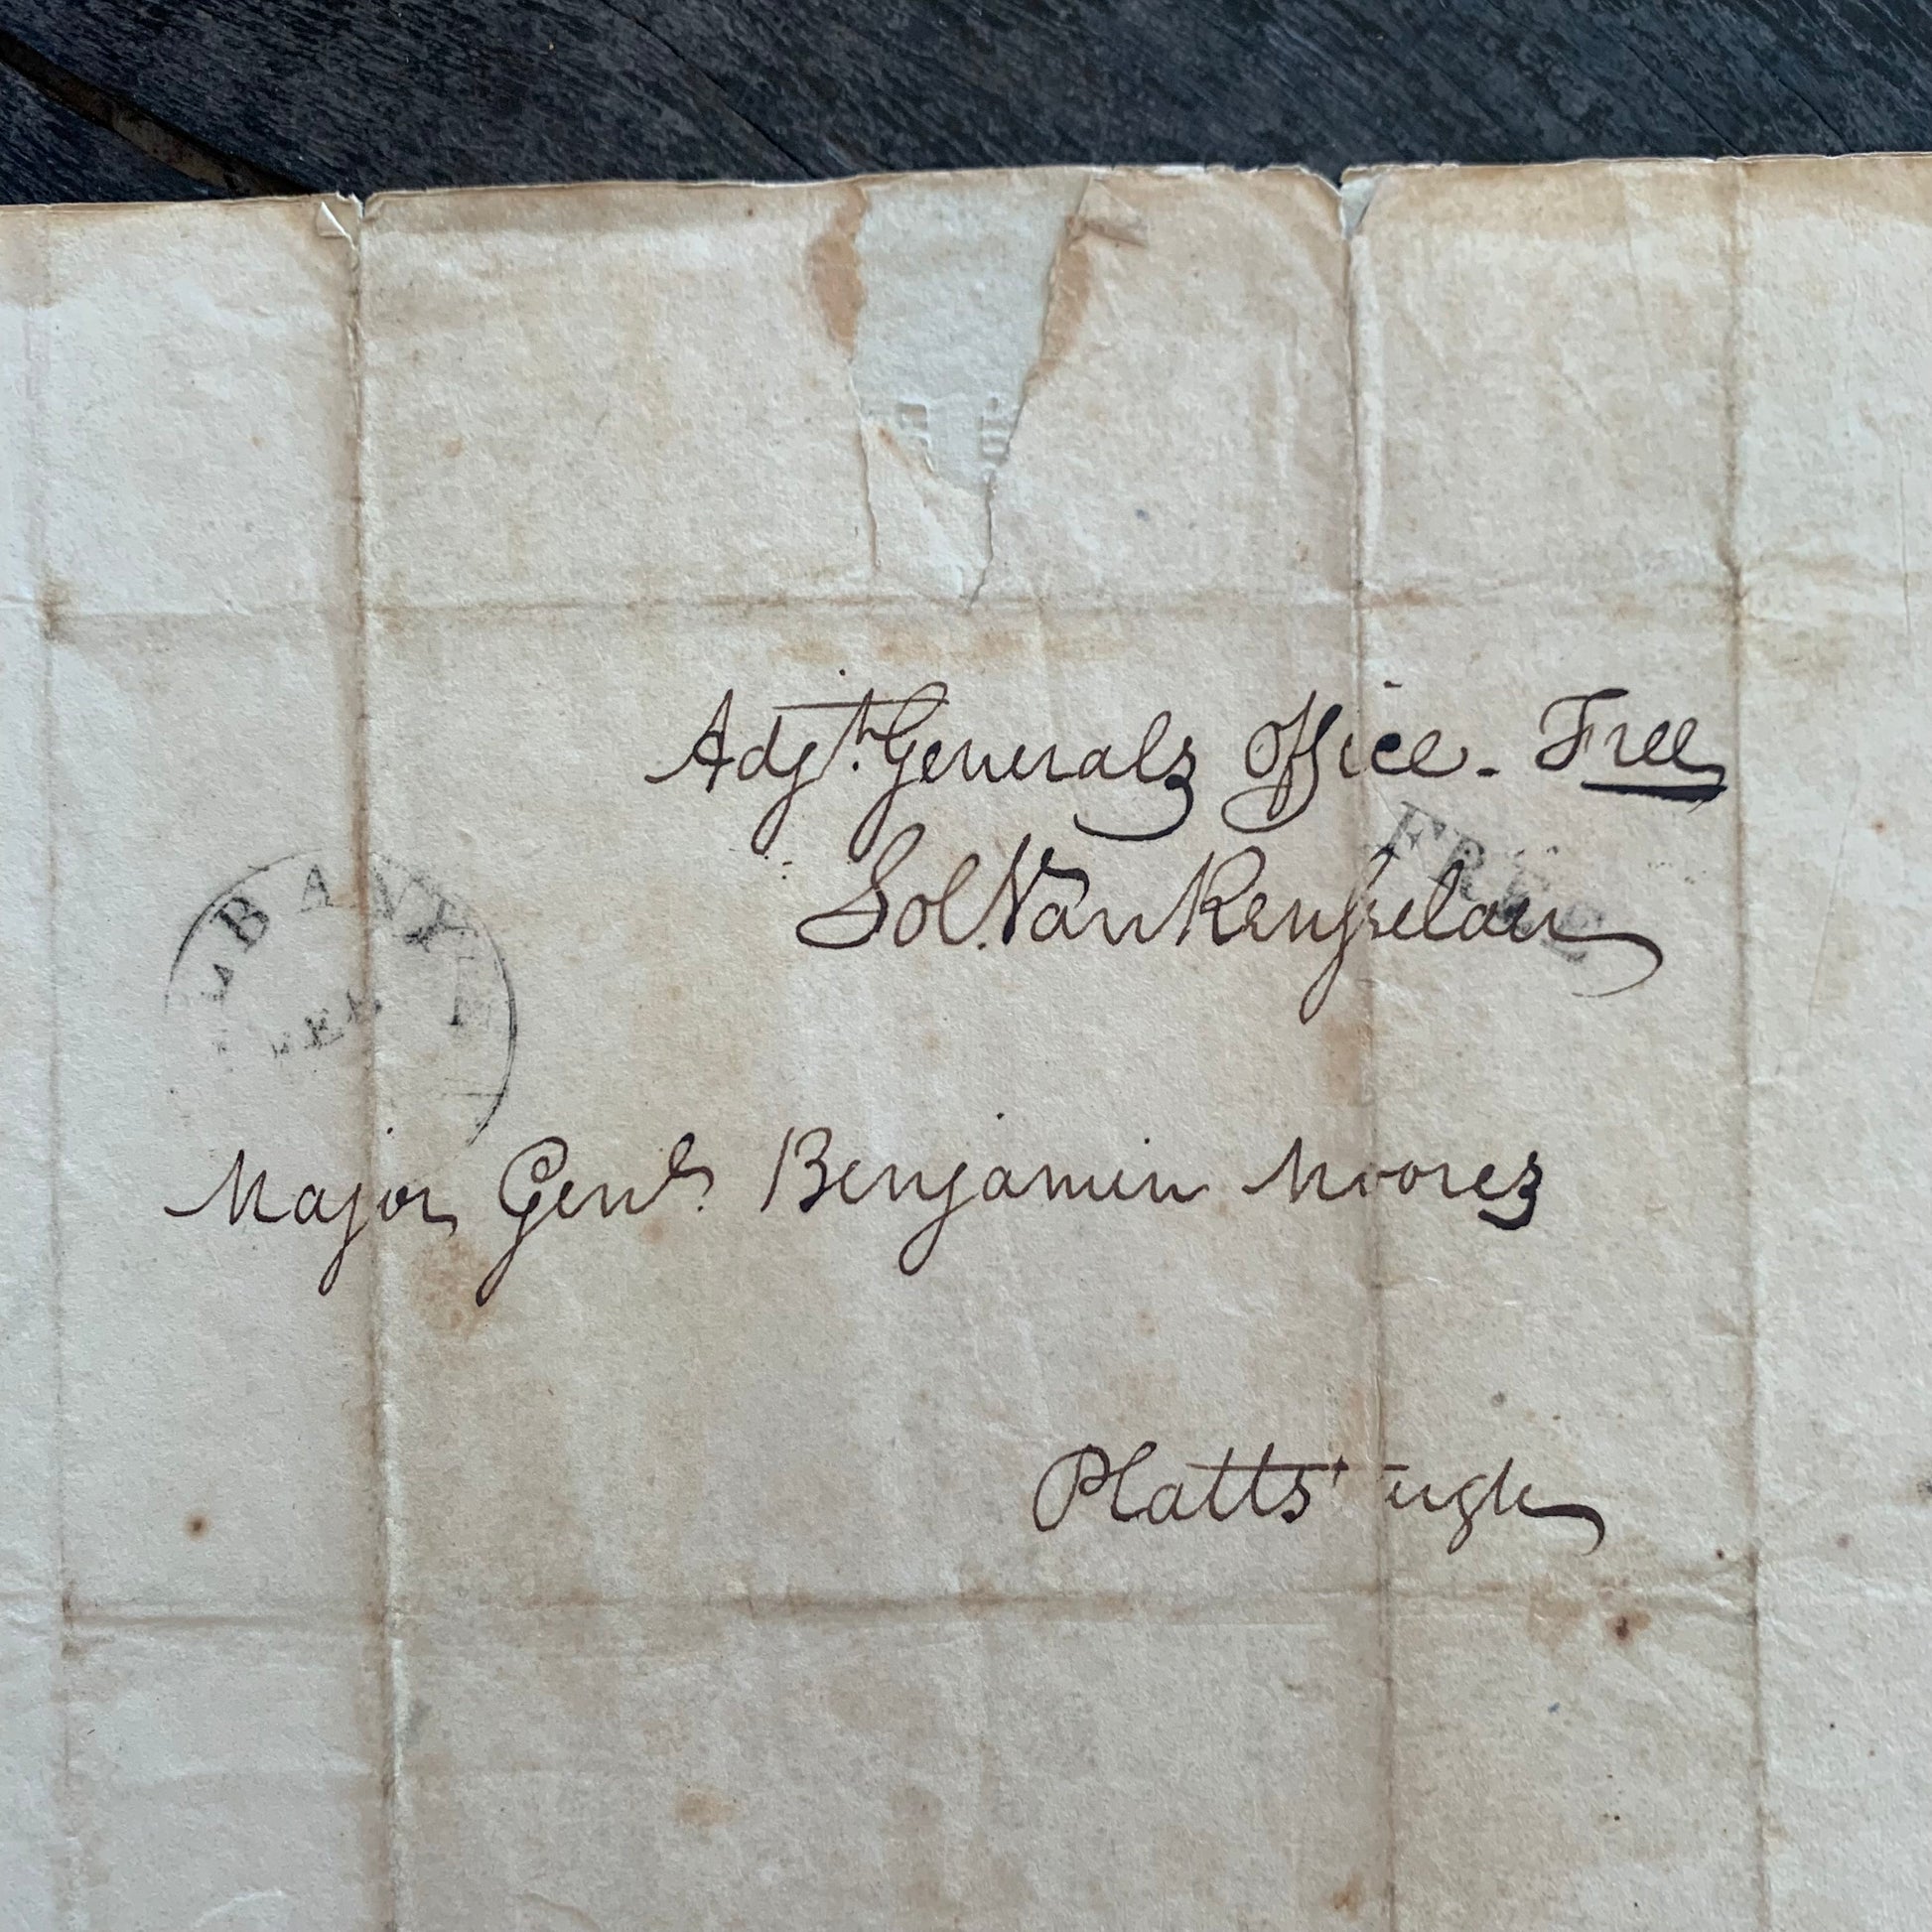 Adjt. Generals Office - Free
FREE
Sol. Van Rensselaer
ALBANY
Major Genl. Benjamin Mooers
Platts urgh